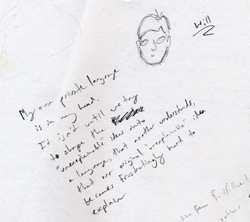 Will
My own private language
is in my head.
It isn't until we try
to shape the
"unexplainable" idea into
a language, that another understands,
that our original "unexplainable" idea
becomes frustratingly hard to
explain